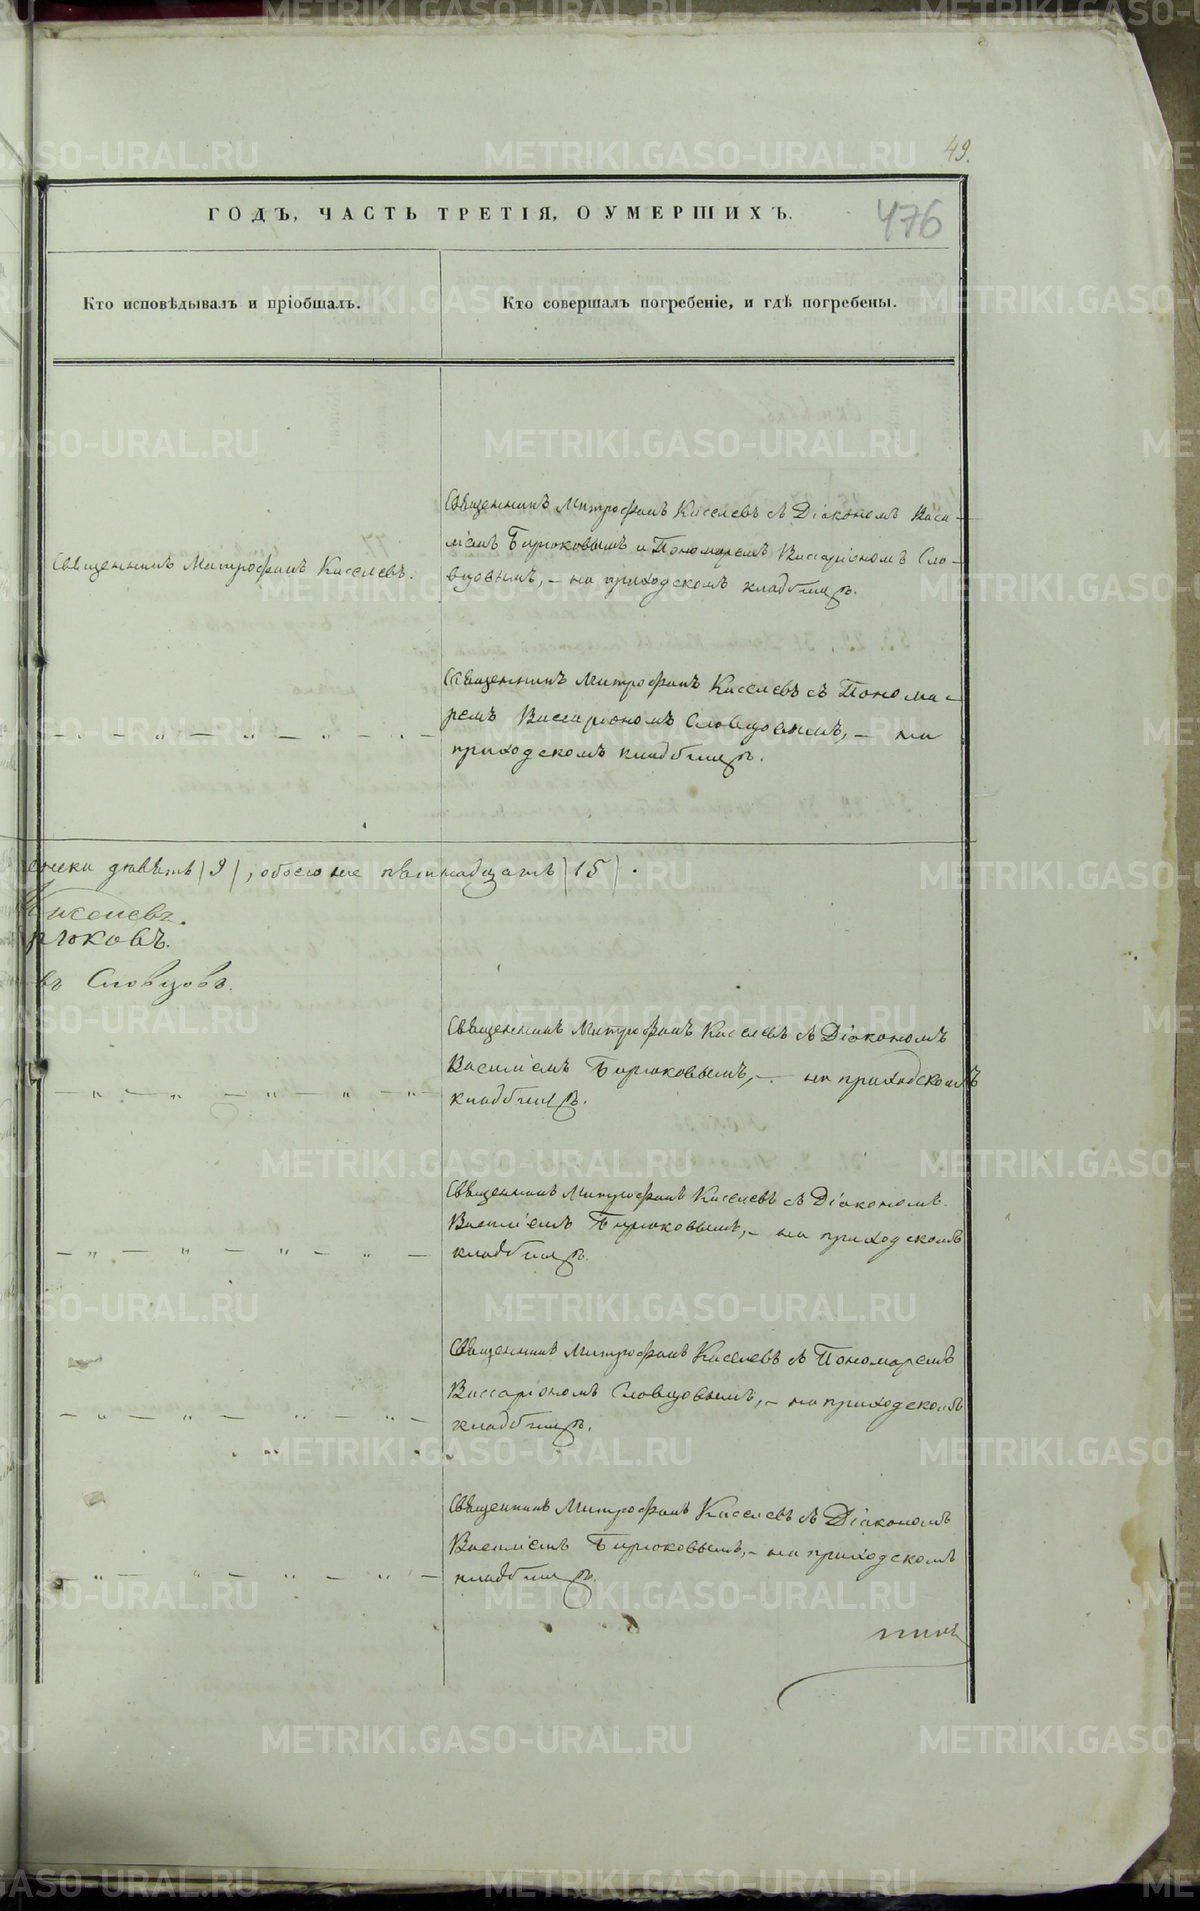 49.
ГОДЪ, ЧАСТЬ ТРЕТІЯ, О УМЕРШИХЪ.
476
Кто исповѣдывалъ и пріобщалъ.
Кто совершалъ погребеніе, и гдѣ погребены.
Священникъ Митрофанъ Киселевъ.
Священникъ Митрофанъ Киселевъ съ Діакономъ Васи-
ліемъ Бирюковымъ и Пономаремъ Виссаріономъ Сло-
вцовымъ, – на приходскомъ кладбищѣ.
– „ – „ – „ – „ –
Священникъ Митрофанъ Киселевъ съ Понома-
ремъ Виссаріономъ Словцовымъ, – на
приходскомъ кладбищѣ.
девять (9), обоего же пятнадцать (15).
Киселевъ.
рюковъ.
въ Словцовъ.
– „ – „ – „ – „ –
Священникъ Митрофанъ Киселевъ съ Діакономъ
Василіемъ Бирюковымъ, – на приходскомъ
кладбищѣ.
– „ – „ – „ – „ –
Священникъ Митрофанъ Киселевъ съ Діакономъ
Василіемъ Бирюковымъ, – на приходскомъ
кладбищѣ.
– „ – „ – „ – „ –
Священникъ Митрофанъ Киселевъ съ Пономаремъ
Виссаріономъ Словцовымъ, – на приходскомъ
кладбищѣ.
– „ – „ – „ – „ –
Священникъ Митрофанъ Киселевъ съ Діакономъ
Василіемъ Бирюковымъ, – на приходскомъ
кладбищѣ.
METRIKI.GASO-URAL.RU